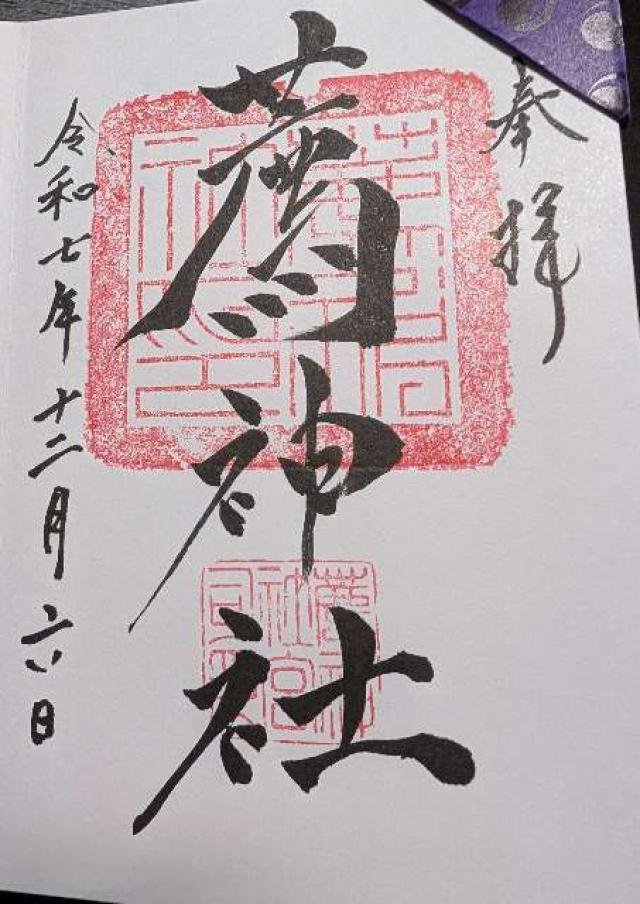 奉拝
薦神社
令和七年十二月六日